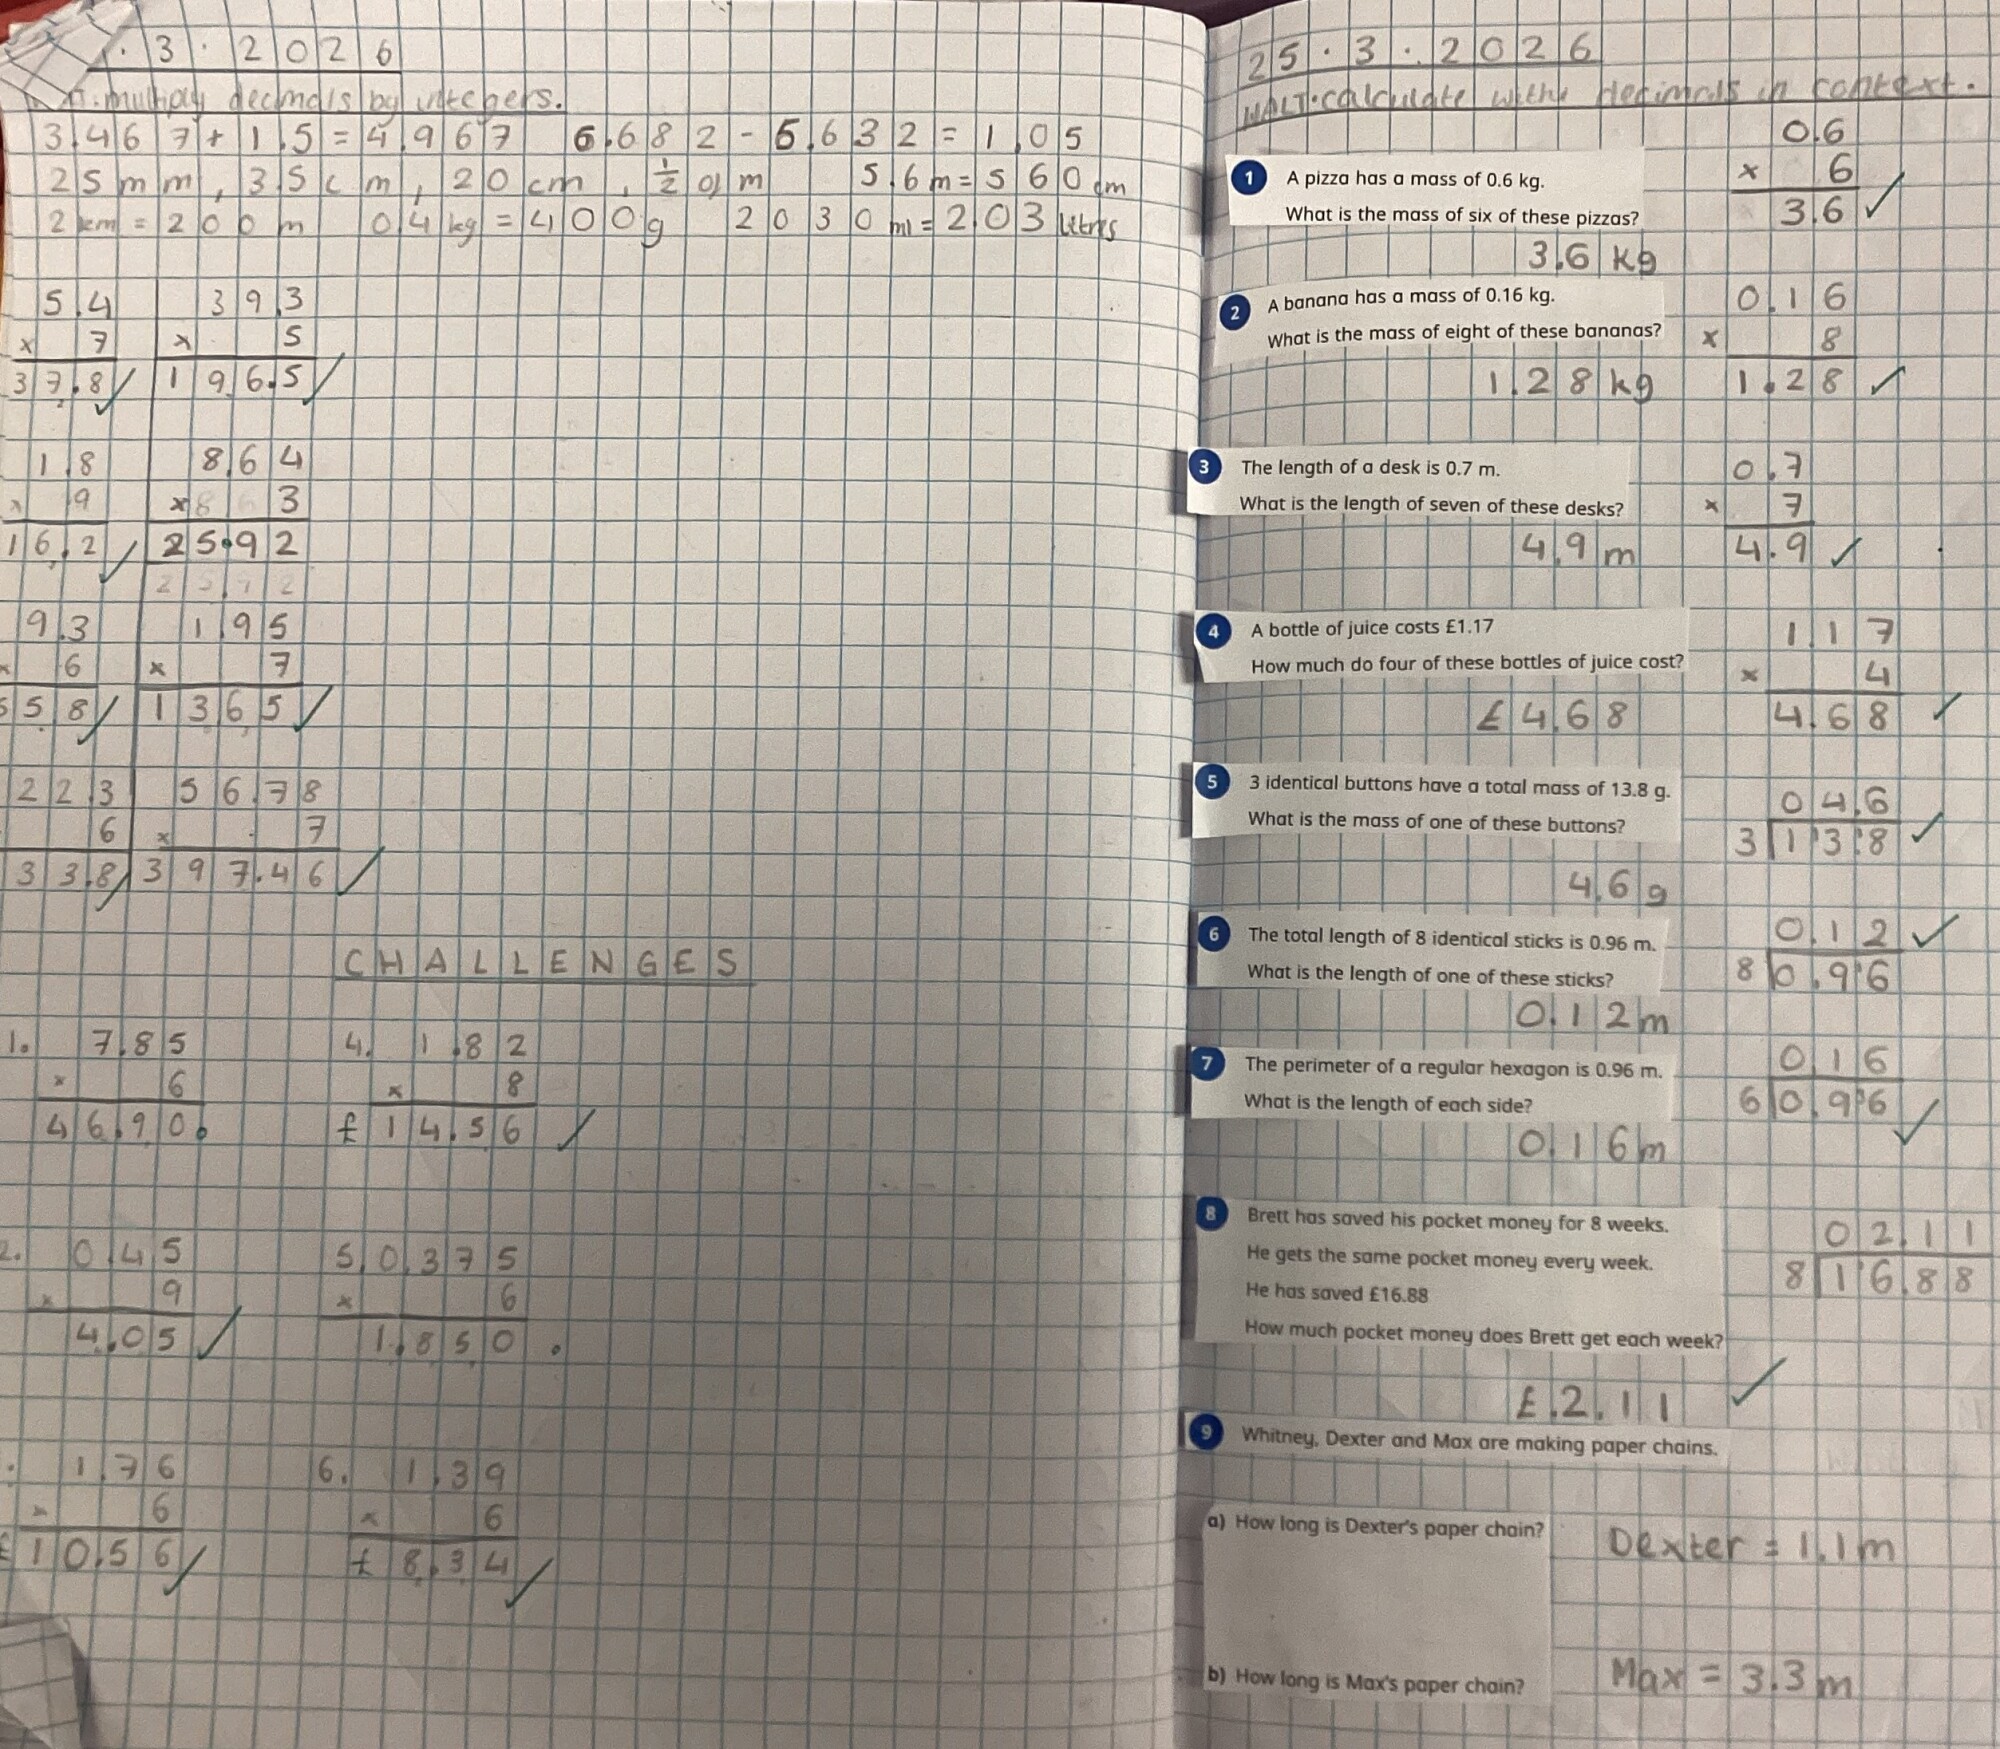 . 3 . 2026
multiply decimals by integers.
3.467 + 1.5 = 4.967 6.682 - 5.632 = 1.05
25mm, 35cm, 20cm, 1/2 of m 5.6m = 560cm
2km = 200m 0.4kg = 400g 2030ml = 2.03 litres
5.4 39.3
x 7 x 5
37.8 ✓ 196.5 ✓
1.8 8.64
x 9 x 3
16.2 ✓ 25.92
9.3 1.95
x 6 x 7
55.8 ✓ 13.65 ✓
22.3 56.78
6 x 7
33.8 ✓ 397.46 ✓
CHALLENGES
1. 7.85 4. 1.82
x 6 x 8
46.90. £14.56 ✓
2. 0.45 5. 0.375
x 9 x 6
4.05 ✓ 1.850 .
. 1.76 6. 1.39
x 6 x 6
£10.56 ✓ £8.34 ✓
25.3.2026
WALT: calculate with decimals in context.
1 A pizza has a mass of 0.6 kg.
What is the mass of six of these pizzas?
3.6 kg
0.6
x 6
3.6 ✓
2 A banana has a mass of 0.16 kg.
What is the mass of eight of these bananas?
1.28 kg
0.16
x 8
1.28 ✓
3 The length of a desk is 0.7 m.
What is the length of seven of these desks?
4.9 m
0.7
x 7
4.9 ✓
4 A bottle of juice costs £1.17
How much do four of these bottles of juice cost?
£4.68
1.17
x 4
4.68 ✓
5 3 identical buttons have a total mass of 13.8 g.
What is the mass of one of these buttons?
4.6 g
04.6
3 13.8 ✓
6 The total length of 8 identical sticks is 0.96 m.
What is the length of one of these sticks?
0.12 m
0.12 ✓
8 0.96
7 The perimeter of a regular hexagon is 0.96 m.
What is the length of each side?
0.16 m
0.16
6 0.96 ✓
8 Brett has saved his pocket money for 8 weeks.
He gets the same pocket money every week.
He has saved £16.88
How much pocket money does Brett get each week?
£.2.11 ✓
02.11
8 16.88
9 Whitney, Dexter and Max are making paper chains.
a) How long is Dexter's paper chain?
Dexter = 1.1m
b) How long is Max's paper chain?
Max = 3.3m